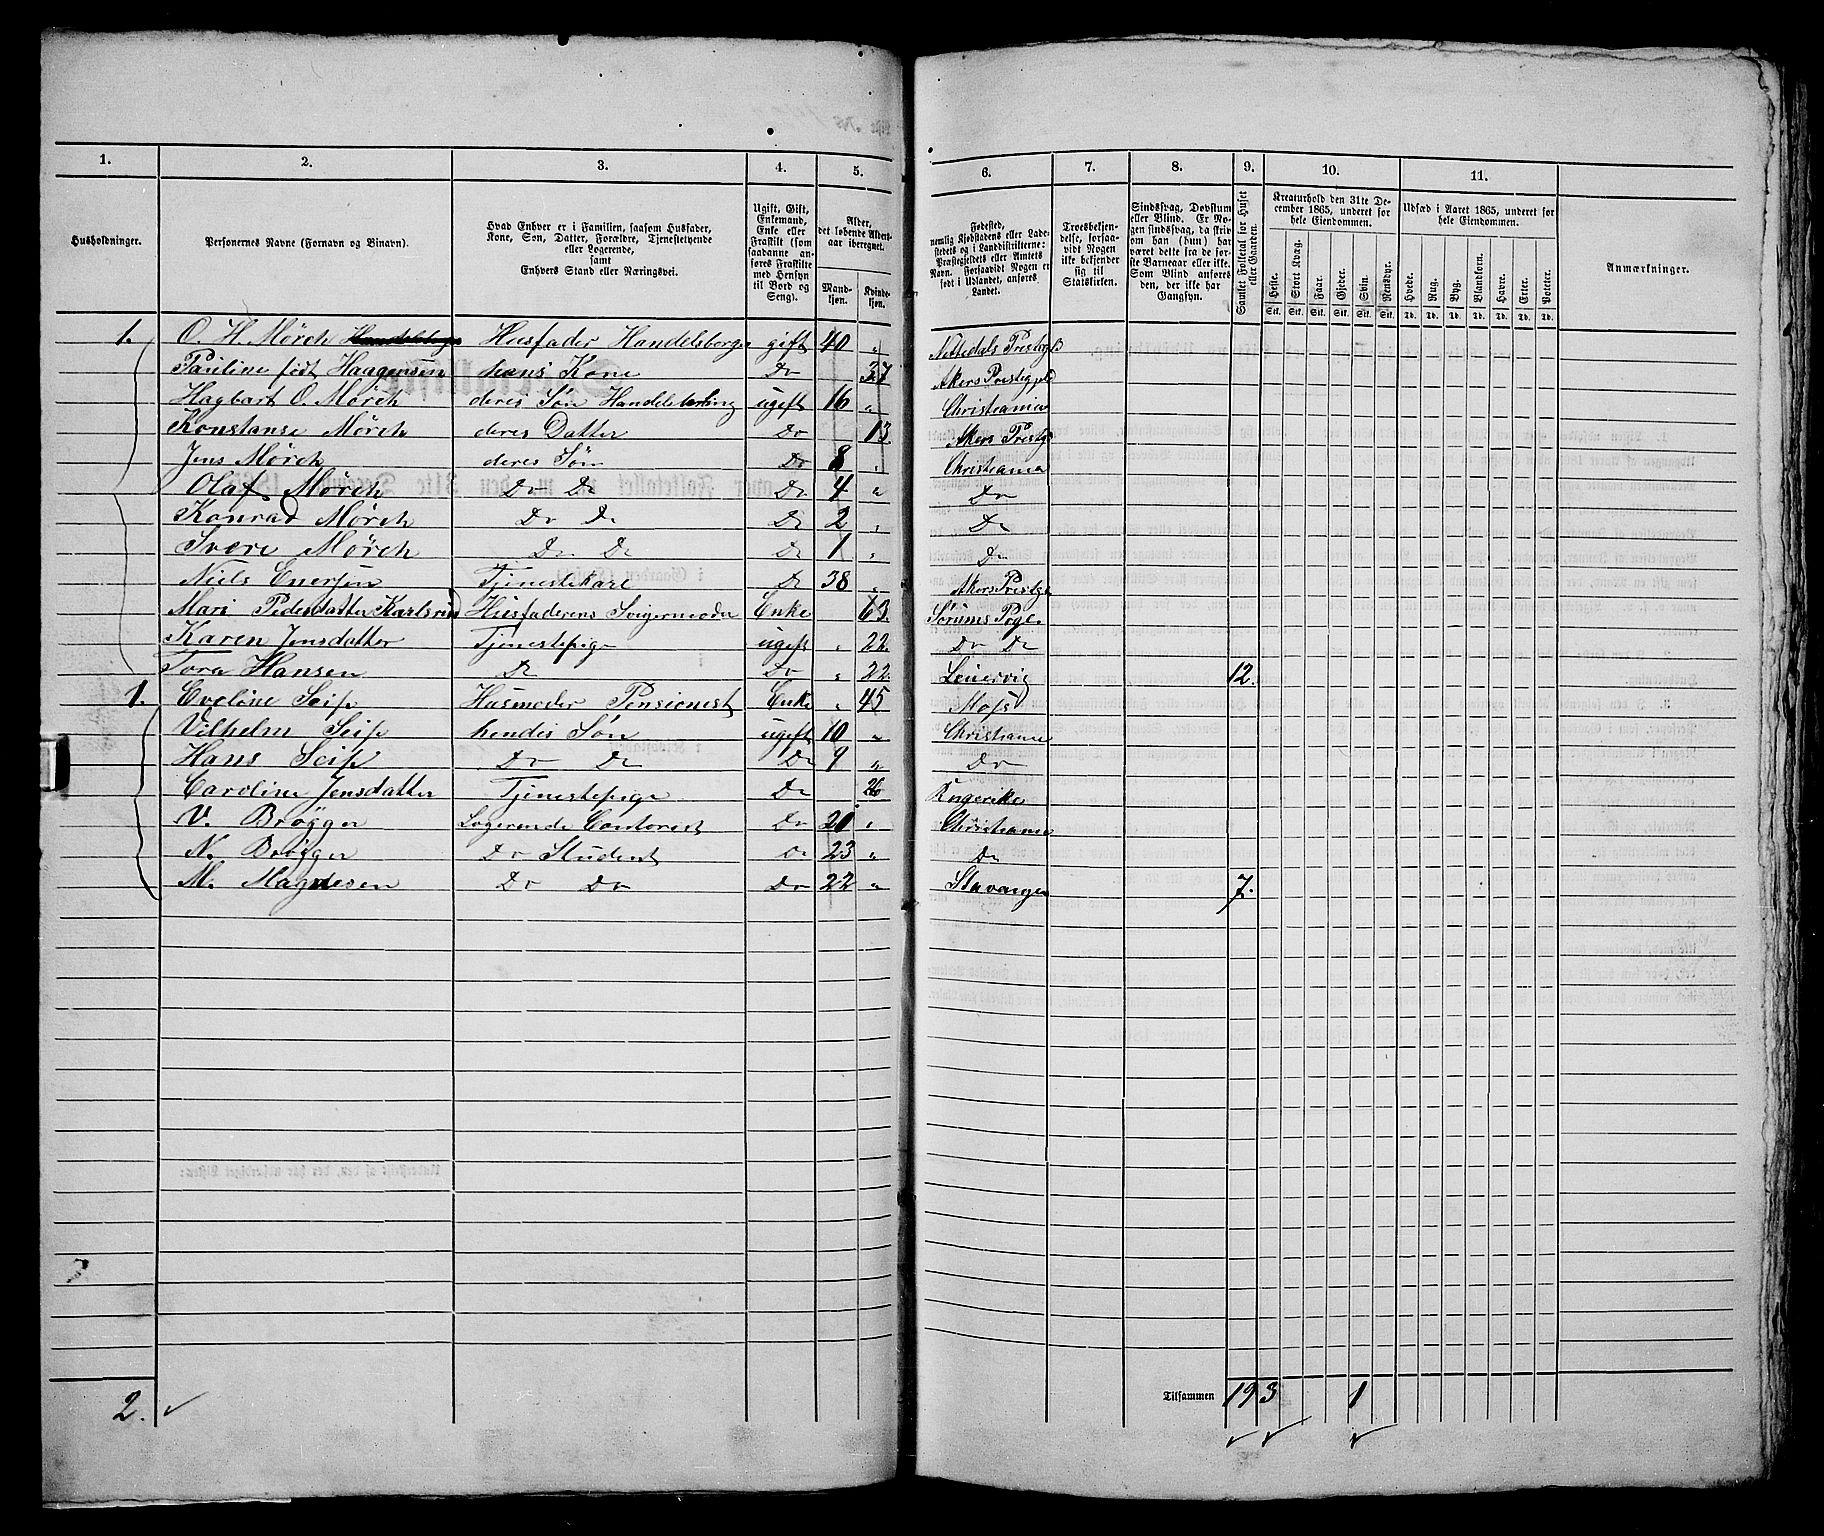 1. 2. 3. 4. 5. 6. 7. 8. 9. 10. 11.
Husholdninger.
Personernes Navne (Fornavn og Binavn).
Hvad Enhver er i Familien, saasom Husfader, Kone, Søn, Datter, Forældre, Tjenestetyende eller Logerende, samt Enhvers Stand eller Næringsvei.
Ugift, Gift, Enkemand, Enke eller Fraskilt (som saadanne anføres Fraskilte med Hensyn til Bord og Seng).
Alder, det løbende Alders-aar iberegnet.
Mand-kjøn. Kvinde-kjøn.
Fødested, nemlig Kjøbstadens eller Lade-stedets og i Landdistrikterne: Præstegjeldets eller Amtets Navn. Forsaavidt Nogen er født i Udlandet, anføres Landet.
Troesbekjen-delse, forsaa-vidt Nogen ikke bekjender sig til Statskirken.
Sindssvag, Døvstum eller Blind. Er No-gen sindssvag, da skriv om han (hun) har været dette fra de før-ste Barneaar eller ikke. Som Blind anføres den, der ikke har Gangsyn.
Samlet Folketal for Huset eller Gaarden.
Kreaturhold den 31te De-cember 1865, underet for hele Eiendommen.
Heste. Stort Kvæg. Faar. Gjeder. Svin. Rensdyr.
Stk. Stk. Stk. Stk. Stk. Stk.
Udsæd i Aaret 1865, underet for hele Eiendommen.
Hvede. Rug. Byg. Blandkorn. Havre. Erter. Poteter.
Td. Td. Td. Td. Td. Td. Td.
Anmærkninger.
1. O. H. Mørch Husfader Handelsborge gift 40 " Nittedals Prestegj
Pauline født Haagensen hans Kone Do 37 Akers Prestegjeld
Hagbart O. Mørch deres Søn Handelslærling ugift 16 " Christiania
Konstanse Mørch deres Datter Do 13 Akers Prestgj
Jens Mørch deres Søn Do 8 " Christiania
Olaf Mørch Do Do Do 4 " Do
Konrad Mørch Do Do Do 2 " Do
Svere Mørch Do Do Do 1 " Do
Niels Enersen Tjenestekarl Do 38 " Akers Prestgj
Mari Pedersdatter Husfaderens Svigermoder Enke 63. Sørums Pgj.
Karen Jensdatter Tjenestepige ugift " 22. Do Do
Tora Hansen Do Do " 22. 12.
1. Eveline Seip Husmoder Pensionist Enke " 45 Moss
Vilhelm Seip hendes Søn ugift 10 " Christiania
Hans Seip Do Do Do 9 " Do
Caroline Jensdatter Tjenestepige Do 26 Ringerike
V. Brøgger Logerende Contorist Do 20 " Christiania
N. Brøgger Do Student Do 23 " Do
M. Magnesen Do Do Do 22 " Stavanger 7.
2. ✓ Tilsammen 19 3 1